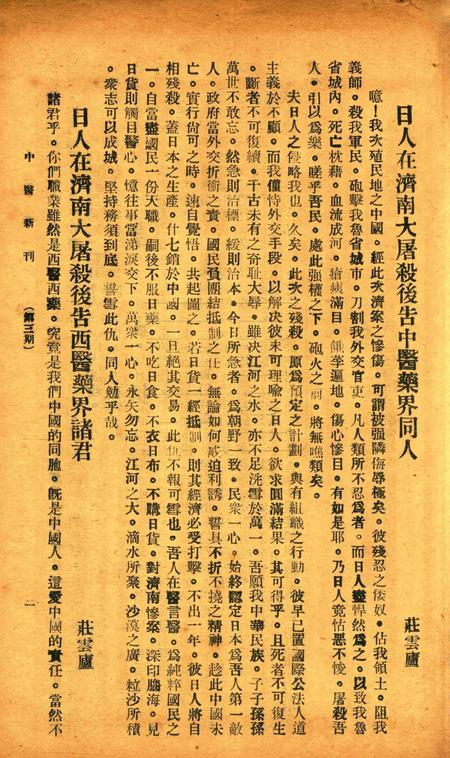 日人在濟南大屠殺後告中醫藥界同人
莊雲廬
噫！我次殖民地之中國。經此次濟案之慘傷。可謂被强隣侮辱極矣。彼殘忍之倭奴。佔我領土。阻我
義師。殺我軍民。砲擊我魯省城市。刀割我外交官吏。凡人類所不忍爲者。而日人盡悍然爲之。以致我魯
省城內。死亡枕藉。血流成河。瘡痍滿目。餓莩遍地。傷心慘目。有如是耶。乃日人竟怙惡不悛。屠殺吾
人。引以爲樂。嗟乎吾民。處此强權之下。砲火之前。將無噍類矣。
夫日人之侵略我也。久矣。此次之殘殺。原爲預定之計劃。與有組織之行動。彼早已置國際公法人道
主義於不顧。而我僅恃外交手段。以解決彼未可理喻之日人。欲求圓滿結果。其可得乎。且死者不可復生
。斷者不可復續。千古未有之奇耻大辱。雖决江河之水。亦不足洗雪於萬一。吾願我中華民族。子子孫孫
萬世不敢忘。然急則治標。緩則治本。今日所急者。爲朝野一致。民衆一心。始終認定日本爲吾人第一敵
人。政府當外交折衝之責。國民負團結抵制之任。無論如何威迫利誘。誓具不折不撓之精神。趁此中國未
亡。實行尙可之時。速自覺悟。共起圖之。若日貨一經抵制。則其經濟必受打擊。不出一年。彼日人將自
相殘殺。蓋日本之生產。什七銷於中國。一旦絕其交易。此仇不報可雪也。吾人在醫言醫。爲純粹國民之
一。自當盡國民一份天職。嗣後不服日藥。不吃日食。不衣日布。不購日貨。對濟南慘案。深印腦海。見
日貨則觸目警心。憶往事當涕淚交下。萬衆一心。永矢勿忘。江河之大。滴水所聚。沙漠之廣。粒沙所積
。衆志可以成城。堅持務須到底。誓雪此仇。同人勉乎哉。
日人在濟南大屠殺後告西醫藥界諸君
莊雲廬
諸君乎。你們職業雖然是西醫西藥。究竟是我們中國的同胞。旣是中國人。這愛中國的責任。當然不
中醫新刊
（第三期）
一